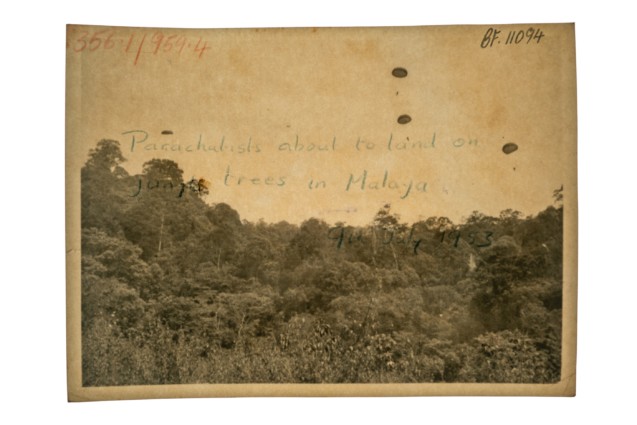 356.1/959.4
BF. 11094
Parachutists about to land on
jungle trees in Malaya
July 1953